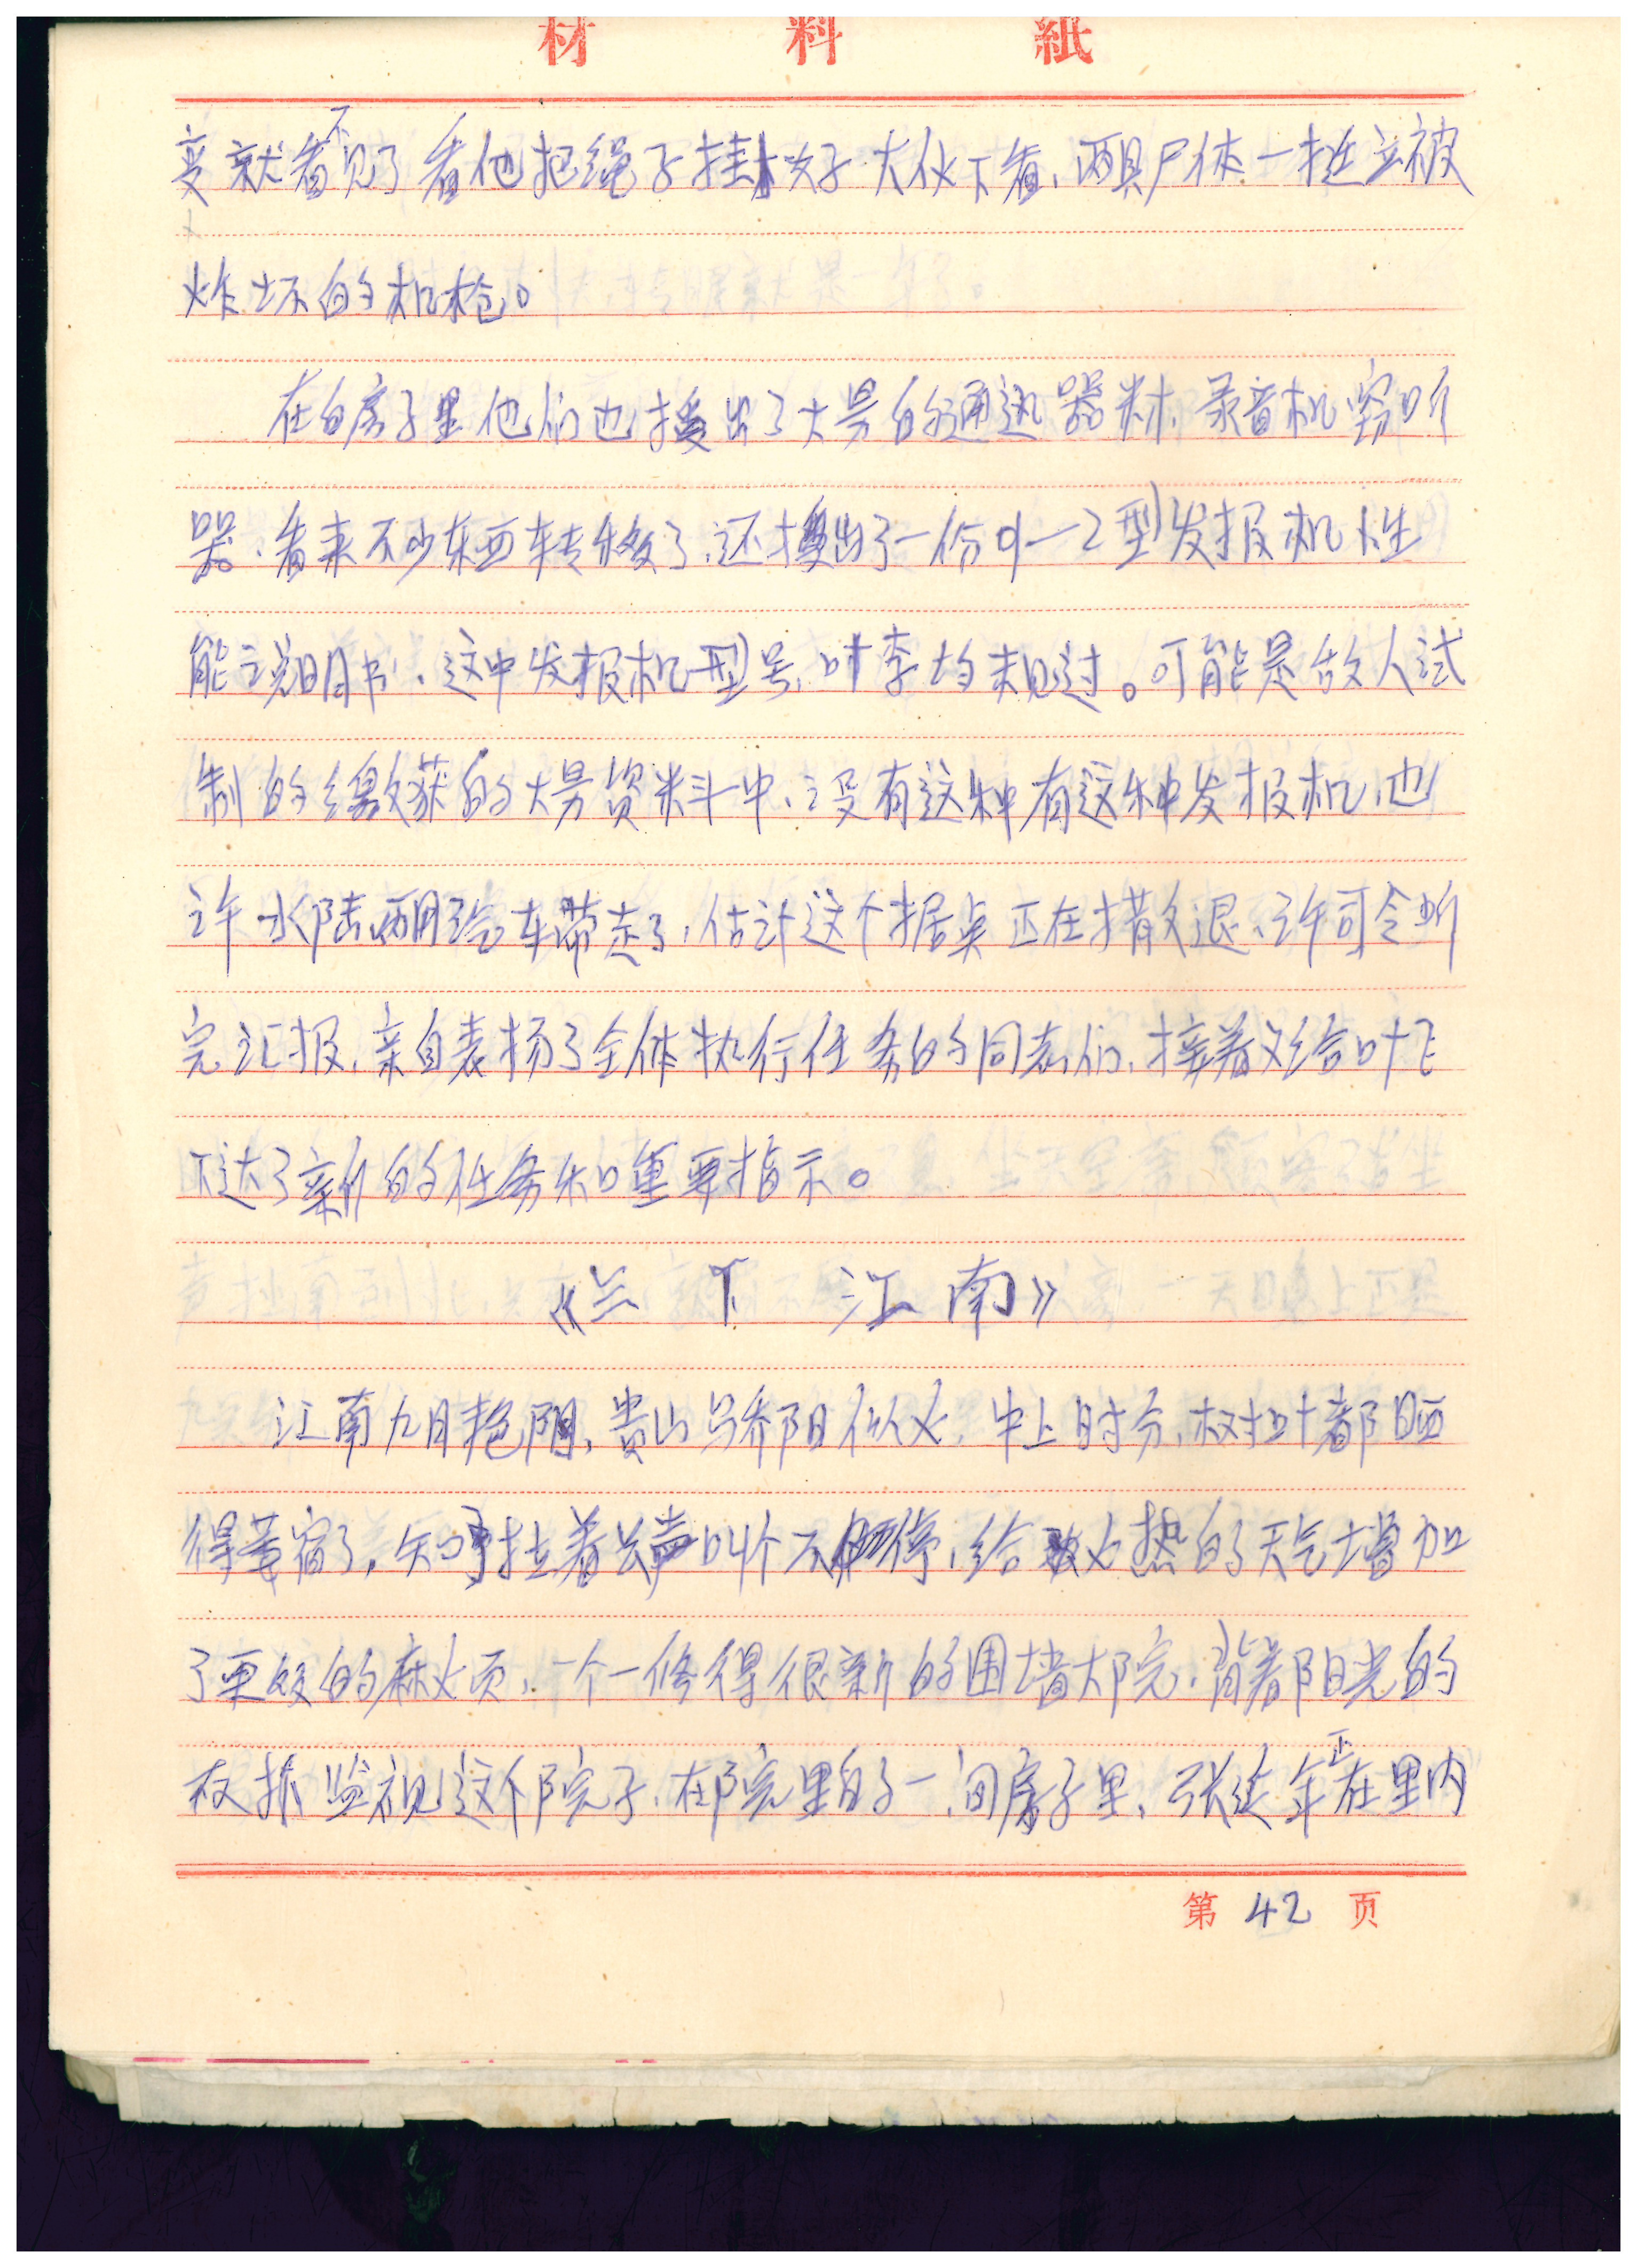 材料紙
变就看不见了看他把绳子挂好大伙下看，两具尸体一挺立被
炸坏的机枪。
在白房子里他们也搜出了大量的通迅器材，录音机窃听
器，看来不少东西转移了，还搜出了一份01—2型发报机性
能说明书，这中发报机型号，叶李均未见过。可能是敌人试
制的缴获的大量资料中，没有这种有这种发报机，也
许水陆两用汽车带走了，估计这个据点正在撤退，许司令听
完汇报，亲自表扬了全体执行任务的同志们，接着又给叶飞
下达了新的任务和重要指示。
《三下江南》
江南九月艳阳，贵山乌乔阳似火，中上时分，树叶都晒
得蔫了，知了拉着长声叫个不停，给火热的天气增加
了更的麻烦，一个修得很新的围墙大院，背着阳光的
在监视这个院子，在院里的一间房子里，张延年正在里内
第42页